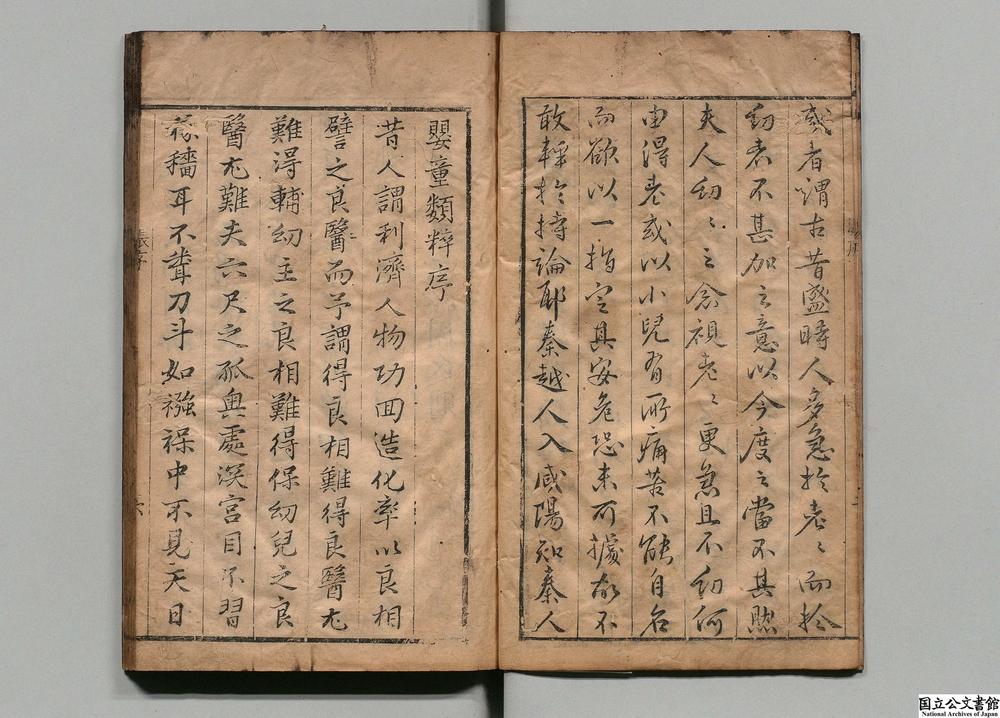 或者謂古昔盛時人多急於老〻而於
幼者不甚加之意以今度之當不其然
夫人幼〻之念視老〻更急且不幼何
由得老或以小兒有所痛苦不能自名
而欲以一指定其安危恐未可據故不
敢輕於持論耶秦越人入咸陽知秦人
嬰童類粹序
昔人謂利濟人物功回造化率以良相
譬之良醫而予謂得良相難得良醫尤
難得輔幼主之良相難得保幼兒之良
醫尤難夫六尺之孤奧處深宮目不習
穡耳不聾刀斗如襁褓中不見天日
張序
六
国立公文書館
National Archives of Japan